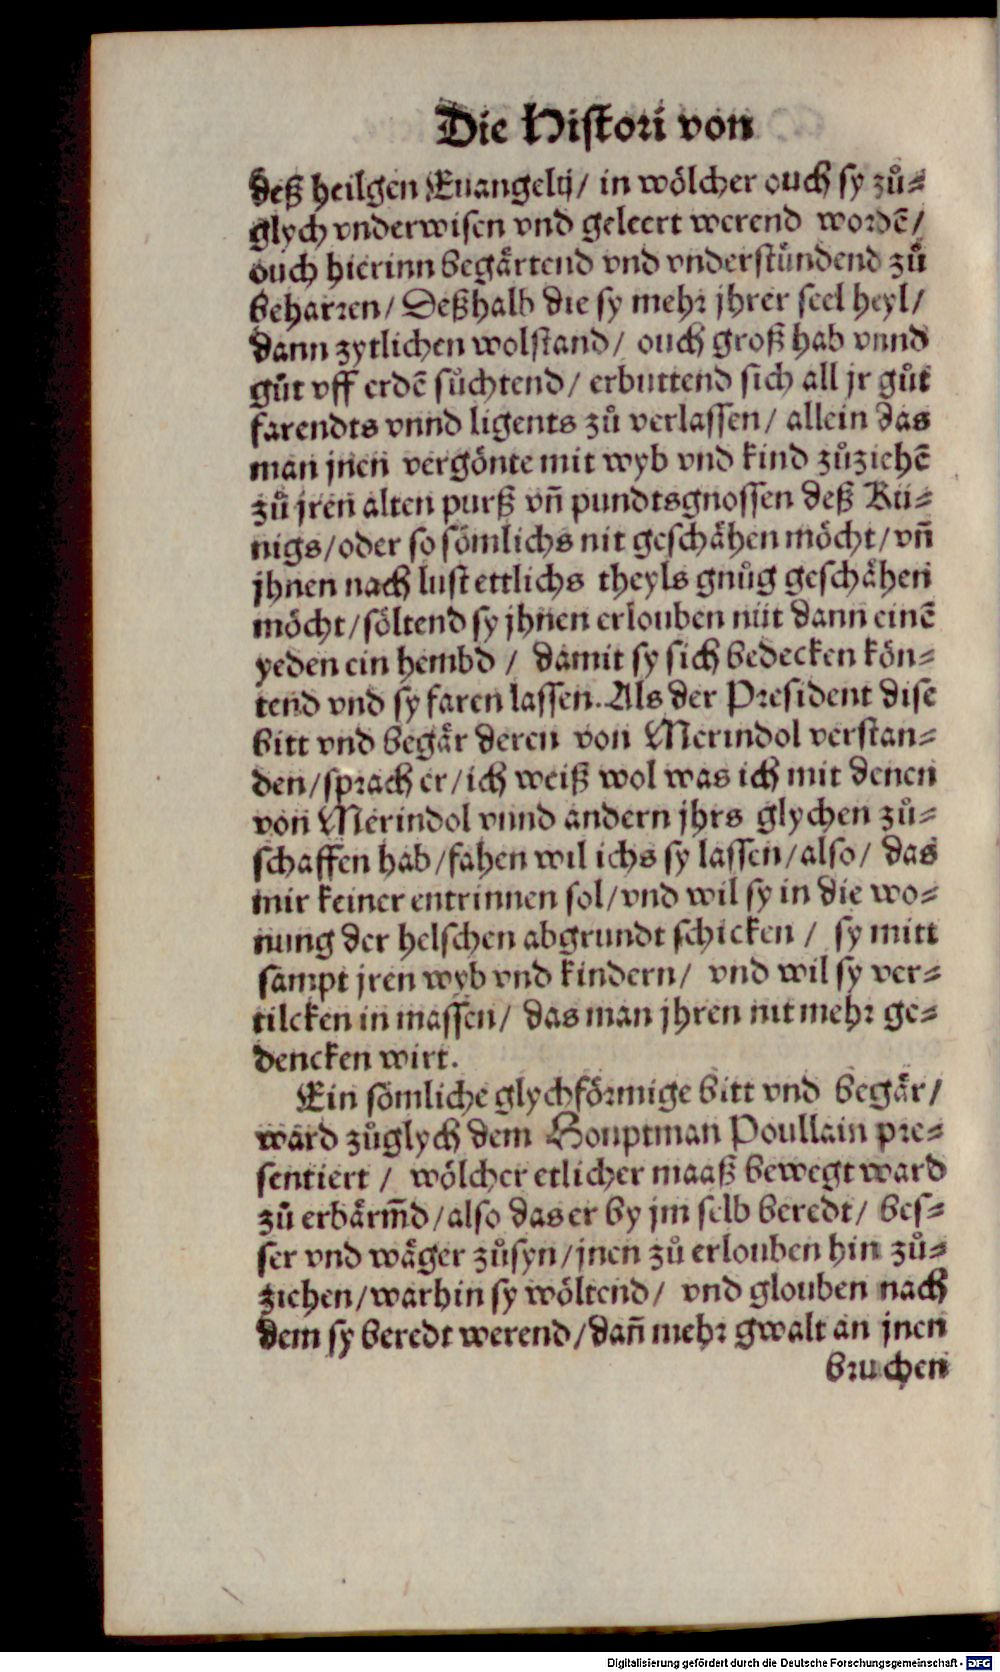 Die Histori von
deß heilgen Euangelij/ in wölcher ouch sy zů⸗
glych vnderwisen vnd geleert werend wordē/
ouch hierinn begärtend vnd vnderstündend zů
beharren/ Deßhalb die sy mehr jhrer seel heyl/
dann zytlichen wolstand/ ouch groß hab vnnd
gůt vff erdē sůchtend/ erbuttend sich all jr gůt
farendts vnnd ligents zů verlassen/ allein das
man jnen vergönte mit wyb vnd kind zůziehē
zů jren alten purß vñ pundtsgnossen deß Kü⸗
nigs/oder so sömlichs nit geschähen möcht/vñ
jhnen nach lust ettlichs theyls gnůg geschähen
möcht/söltend sy jhnen erlouben nüt dann einē
yeden ein hembd / damit sy sich bedecken kön⸗
tend vnd sy faren lassen. Als der President dise
bitt vnd begär deren von Merindol verstan⸗
den/sprach er/ich weiß wol was ich mit denen
von Merindol vnnd andern jhrs glychen zů⸗
schaffen hab/fahen wil ichs sy lassen/also/ das
mir keiner entrinnen sol/vnd wil sy in die wo⸗
nung der helschen abgrundt schicken / sy mitt
sampt jren wyb vnd kindern/ vnd wil sy ver⸗
tilcken in massen/ das man jhren nit mehr ge⸗
dencken wirt.
Ein sömliche glychförmige bitt vnd begär/
ward zůglych dem Houptman Poullain pre⸗
sentiert / wölcher etlicher maaß bewegt ward
zů erbärm̄d/also das er by jm selb beredt/ bes⸗
ser vnd wäger zůsyn/jnen zů erlouben hin zů⸗
ziehen/warhin sy wöltend/ vnd glouben nach
dem sy beredt werend/dañ mehr gwalt an jnen
bruchen
Digitalisierung gefördert durch die Deutsche Forschungsgemeinschaft - DFG